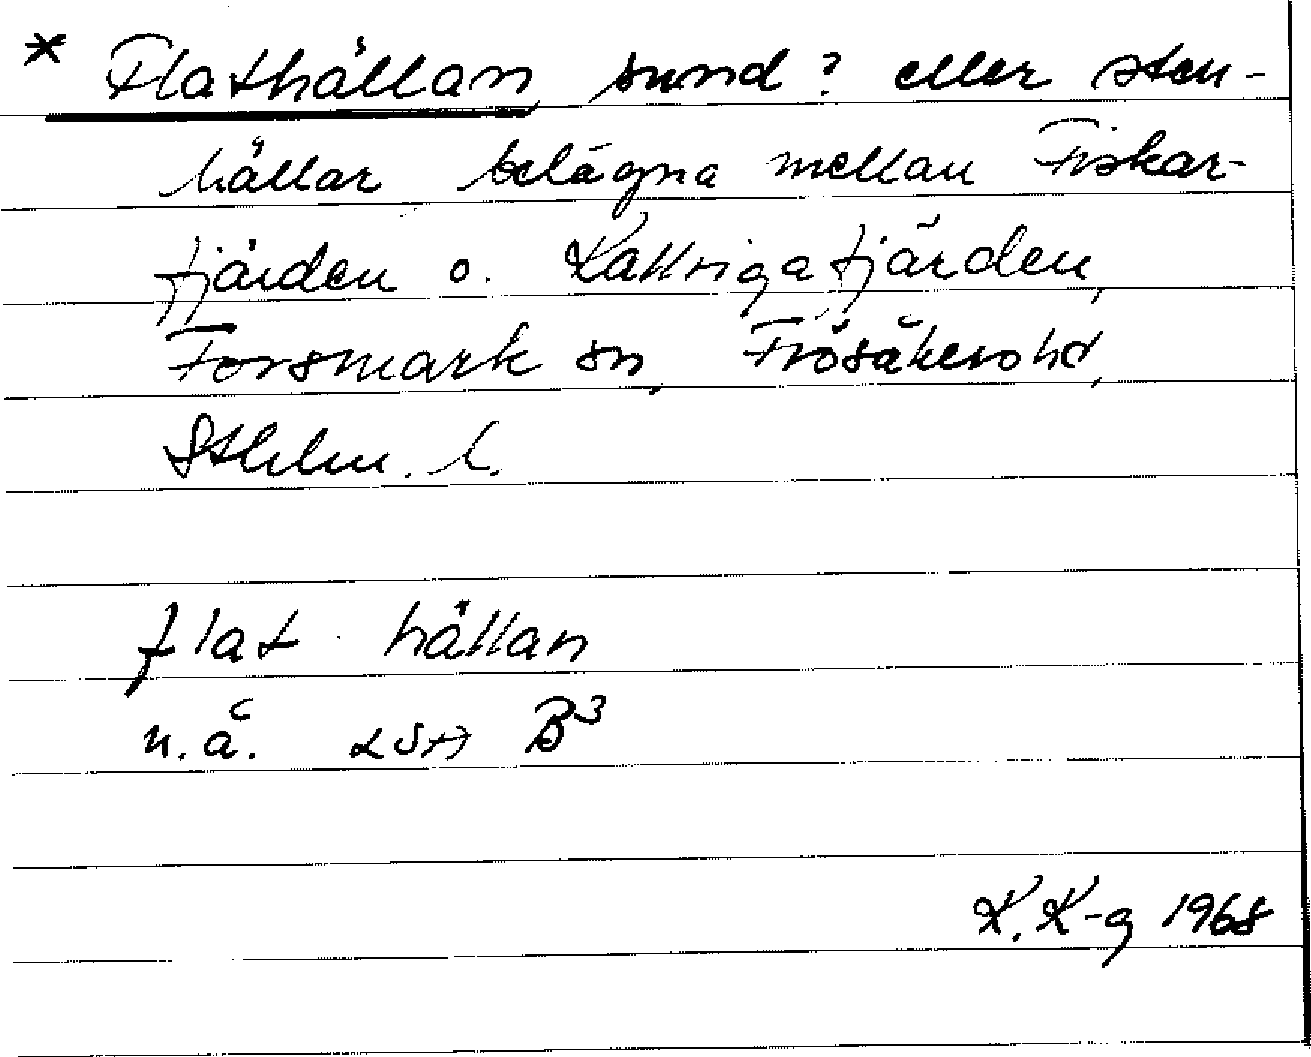 * Flathällan, sund? eller sten-
hällar belägna mellan Fiskar-
fjärden o. Kallrigafjärden,
Forsmark sn, Frösåkers hd,
Sthlm. l.
flat hällan
n.ä. B3
K. K-g 1968